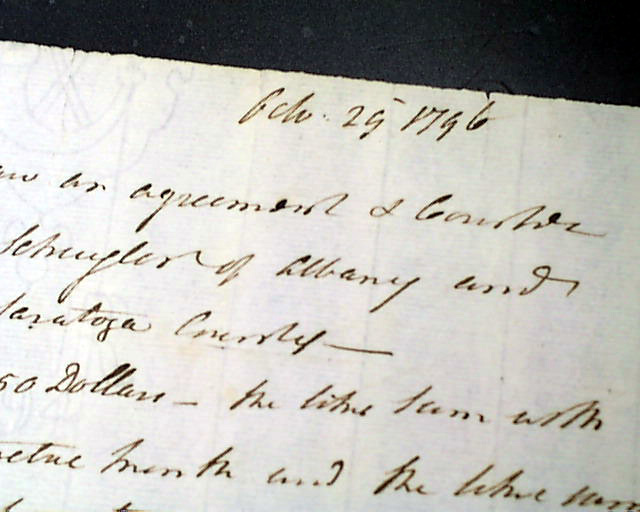 Octo. 29 1796
an agreement & Counter
Schuyler of Albany and
Saratoga County—
50 Dollars — the like sum with
month and the like sum